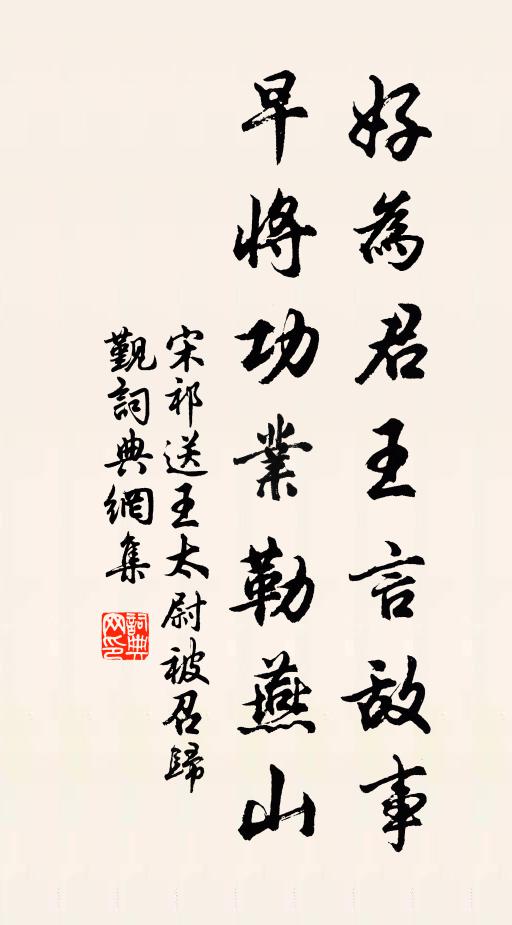 好為君王言敌事
早將功業勒燕山
宋祁送王太尉被召歸
覲詞典網集
詞典网印